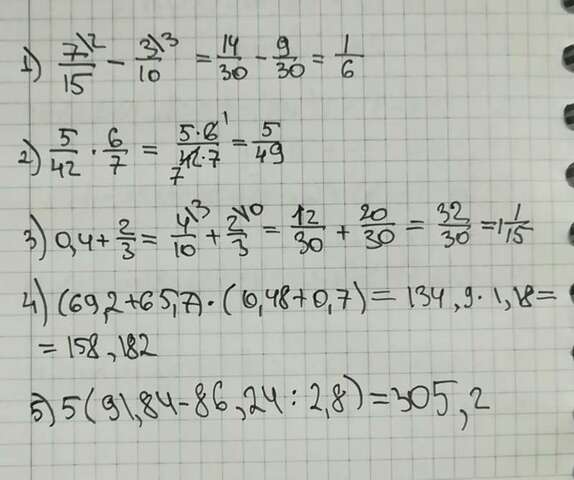 1) 7\2/15 - 3\3/10 = 14/30 - 9/30 = 1/6
2) 5/42 · 6/7 = 5·6 1/42·7 7 = 5/49
3) 0,4 + 2/3 = 4\3/10 + 2\10/3 = 12/30 + 20/30 = 32/30 = 1 1/15
4) (69,2+65,7) · (0,48+0,7) = 134,9 · 1,18 =
= 158,182
5) 5(91,84-86,24:2,8) = 305,2